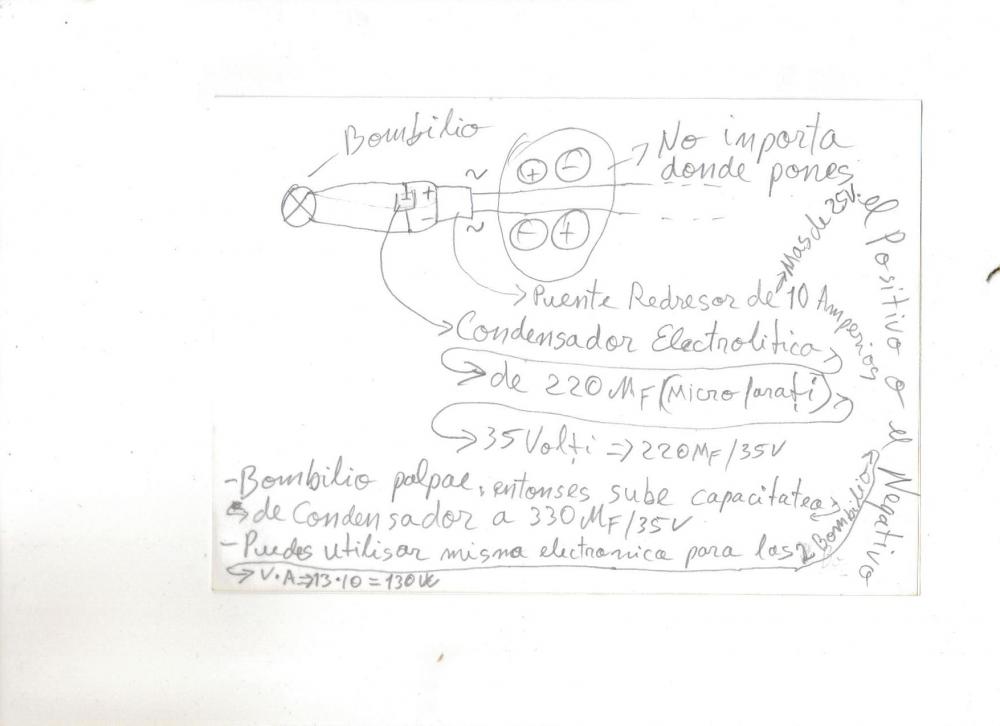 Bombilio
No importa
donde pones
el Positivo o el Negativo
+ -
- +
~
+
-
~
Mas de 25V.
Puente Redresor de 10 Amperios
Condensador Electrolitica
de 220 MF (Microfarați)
35 Volți => 220MF/35V
-Bombilio palpae, entonses sube capacitatea
de Condensador a 330 MF/35V
-Puedes utilisar misma electronica para las 2 Bombilio
V·A=>13·10=130W